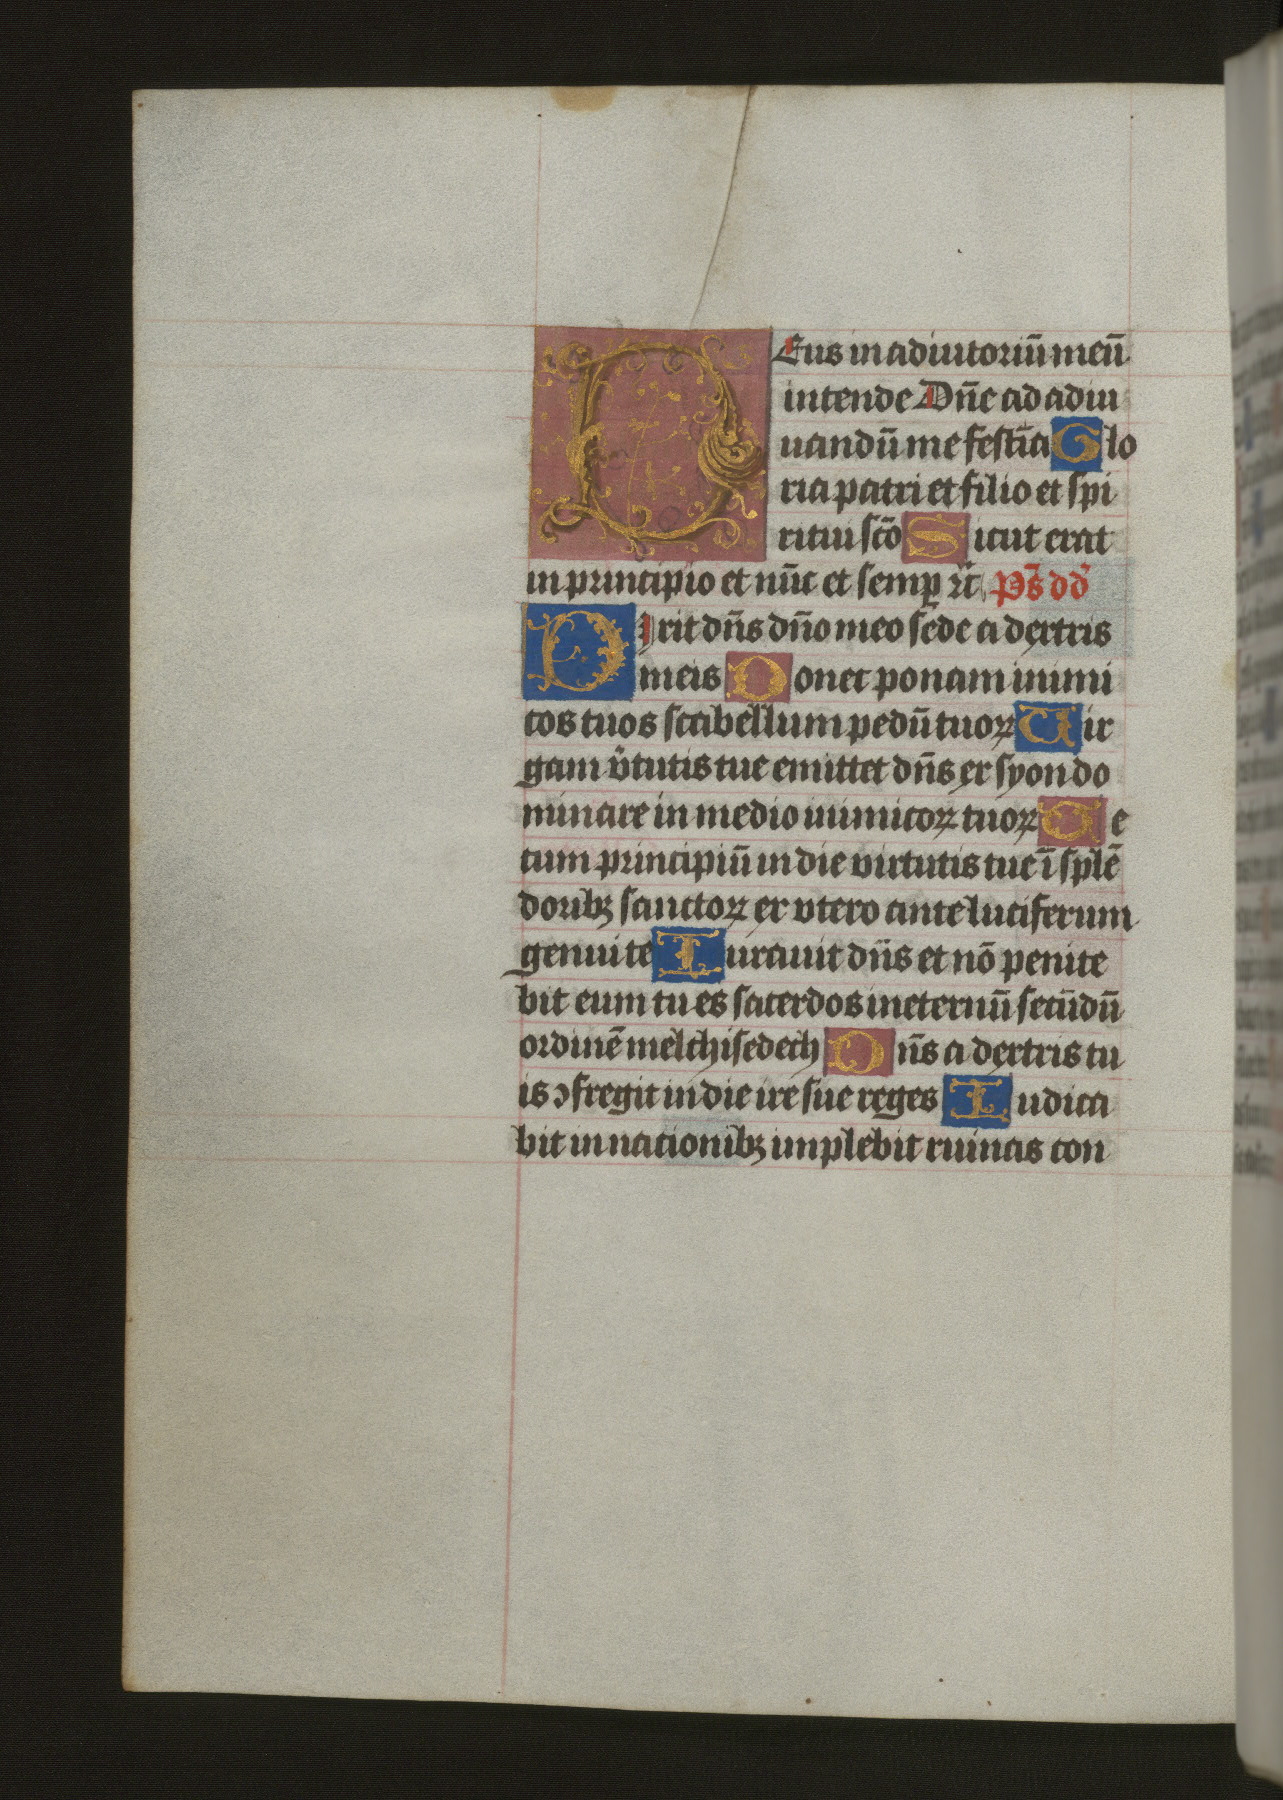 DEus in adiutoriū meū
intende Dn̄e ad adiu
uandū me festīa Glo
ria patri et filio et spi
ritui sc̄o Sicut erat
in principio et nūc et semꝑ ⁊c̄ ps̄ dd̄
Dixit dn̄s dn̄o meo sede a dextris
meis Donec ponam inimi
cos tuos scabellum pedū tuoꝝ Uir
gam v̓tutis tue emittet dn̄s ex syon do
minare in medio inimicoꝝ tuoꝝ Te
cum principiū in die virtutis tue ī splē
doribꝫ sanctoꝝ ex vtero ante luciferum
genui te Iurauit dn̄s et nō penite
bit eum tu es sacerdos ineternū secūdū
ordinē melchisedech Dn̄s a dextris tu
is ꝯfregit in die ire sue reges Iudica
bit in nationibꝫ implebit ruinas con